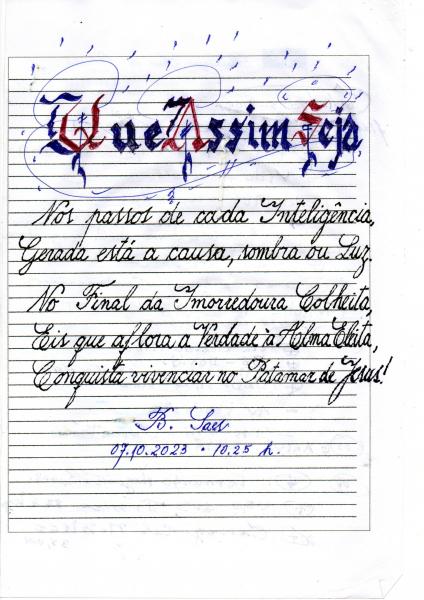 Que Assim Seja
Nos passos de cada Inteligência,
Gerada está a causa, sombra ou Luz.
No Final da Imorredoura Colheita,
Eis que aflora a Verdade à Alma Eleita,
Conquista vivenciar no Patamar de Jesus!
B. Saes
07.10.2023 • 10.25 h.